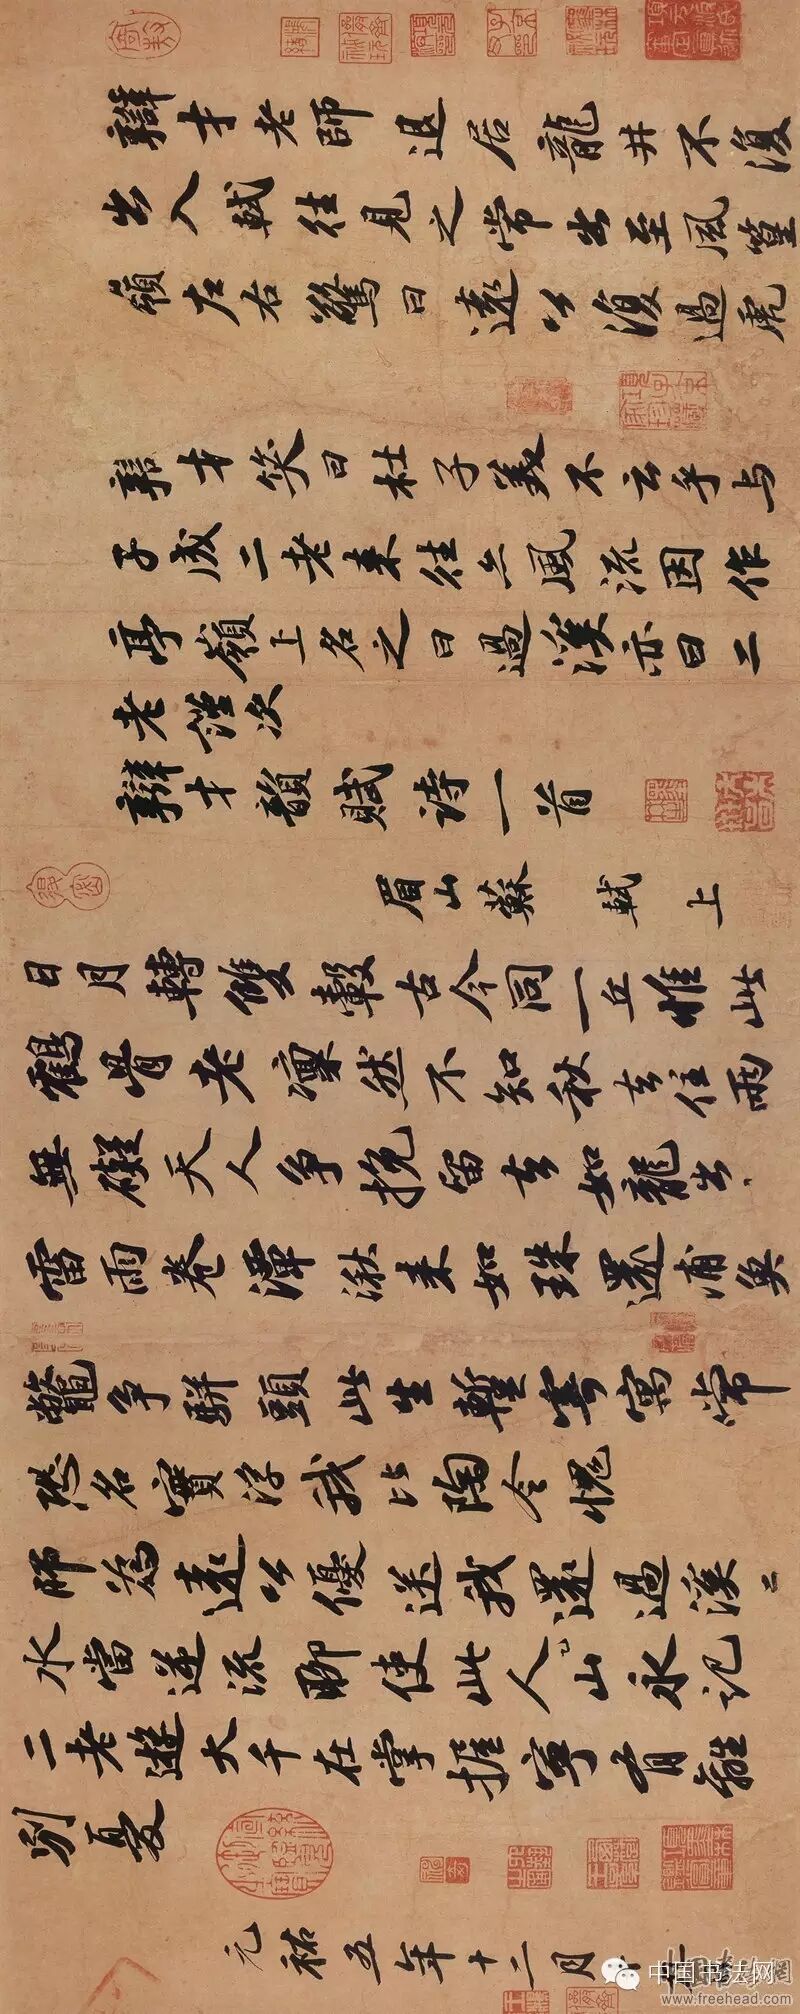 辯才老師退居龍井不復
出入軾往見之常出至風篁
嶺左右驚曰遠公復過虎
辯才笑曰杜子美不云乎與
子成二老來往亦風流因作
亭嶺上名之曰過溪亦曰二
老謹次
辯才韻賦詩一首
眉山蘇軾上
日月轉雙轂古今同一丘惟此
鶴骨老凜然不知秋去住兩
無礙天人爭挽留去如龍出
雷雨卷潭湫來如珠還浦魚
鱉爭駢頭此生暫寄寓常
恐名實浮我比陶令愧
師為遠公優送我還過溪
水當逆流聊使此人山永記
二老遊大千在掌握寧有離
別憂
元祐五年十二月
中国书法网
www.freehead.com